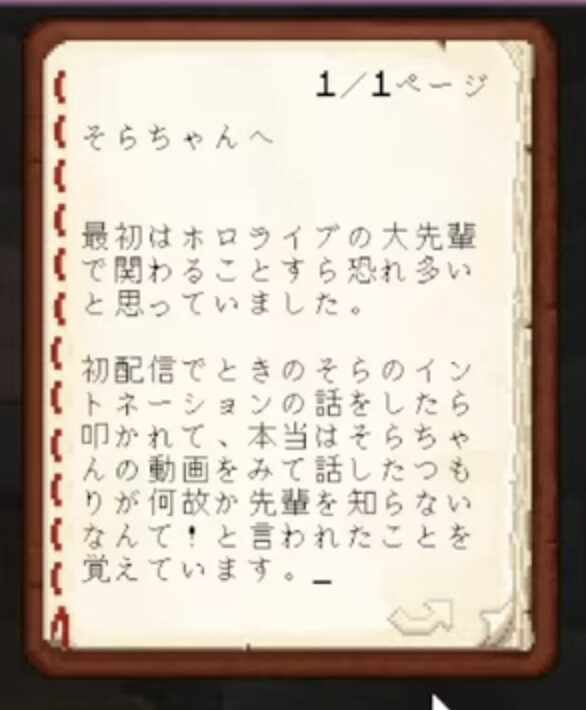 1/1ページ
そらちゃんへ
最初はホロライブの大先輩
で関わることすら恐れ多い
と思っていました。
初配信でときのそらのイン
トネーションの話をしたら
叩かれて、本当はそらちゃ
んの動画をみて話したつも
りが何故か先輩を知らない
なんて!と言われたことを
覚えています。_